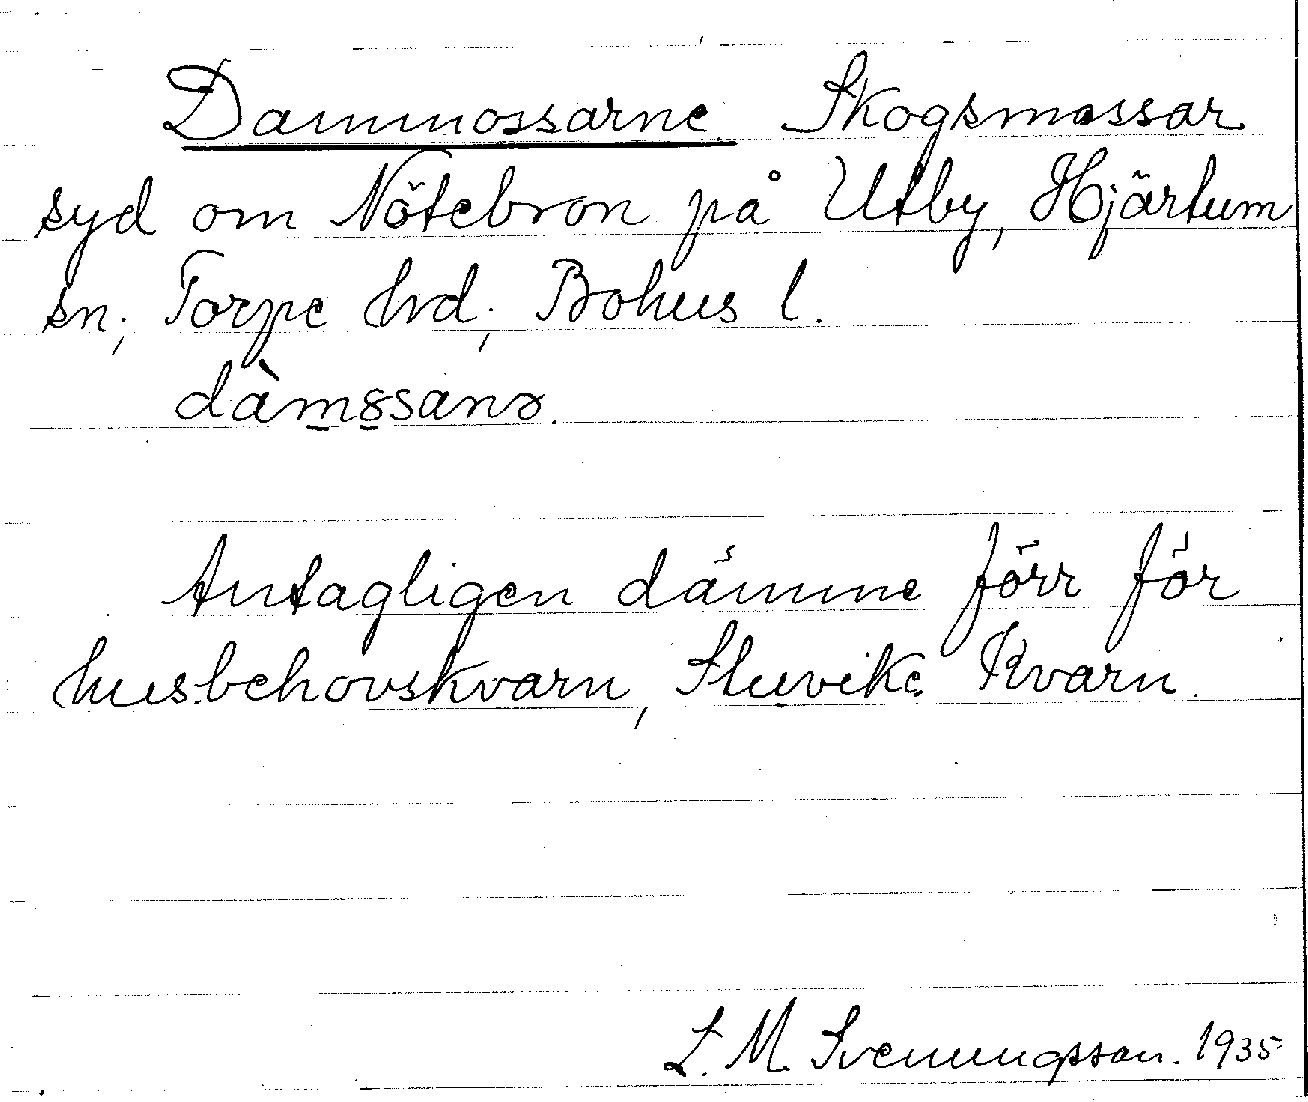 Dammossarne. Skogsmossar
syd om Nötebron på Utby, Hjärtum
sn; Torpe hrd; Bohus l.
dàm8sanɷ.
Antagligen dämme förr för
husbehovskvarn, Sluvike Kvarn.
L. M. Svenungsson. 1935